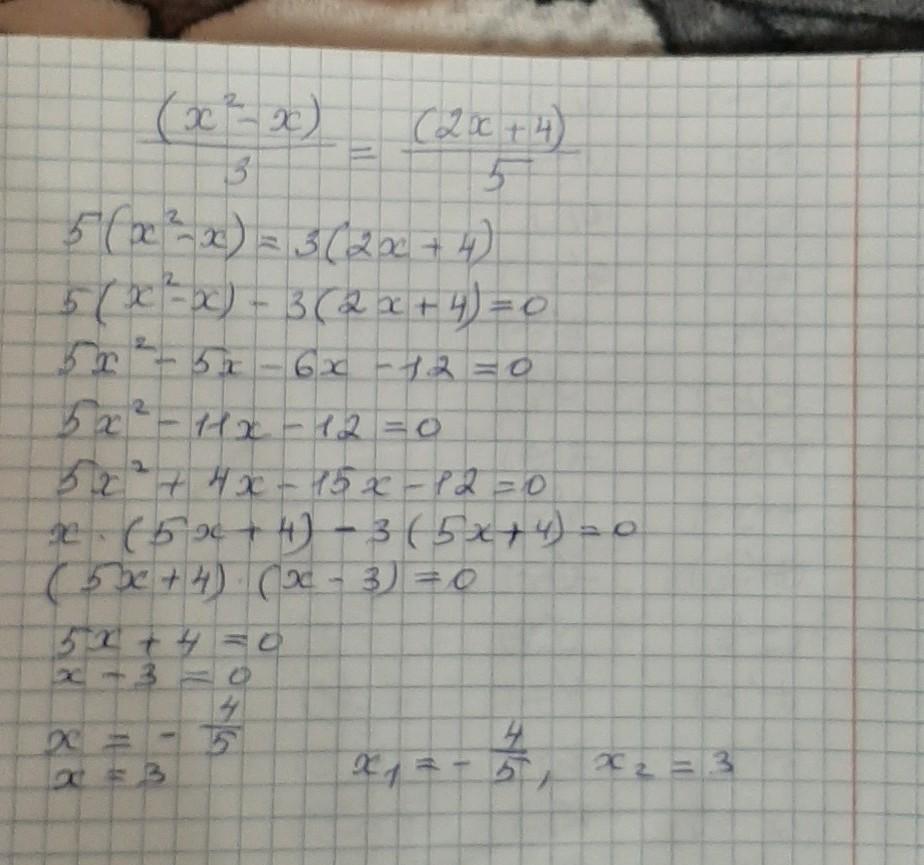 (x² - x)/3 = (2x + 4)/5
5(x² - x) = 3(2x + 4)
5(x² - x) - 3(2x + 4) = 0
5x² - 5x - 6x - 12 = 0
5x² - 11x - 12 = 0
5x² + 4x - 15x - 12 = 0
x · (5x + 4) - 3(5x + 4) = 0
(5x + 4) · (x - 3) = 0
5x + 4 = 0
x - 3 = 0
x = - 4/5
x = 3
x₁ = - 4/5, x₂ = 3